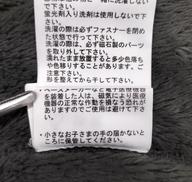 蛍光剤入り洗剤は使用しないで下
さい。
洗濯の際は必ずファスナーを閉め
た状態で行って下さい。
洗濯の際は、必ず磁石製のパーツ
を取り外して下さい。
濡れたまま放置すると多少色落ち
や色移りすることがあります。ご
注意下さい。
形を整えてから干して下さい。
ペースメーカーなど電子医療機器
を装着した人は、磁気により医療
機器の正常な作動を損なう恐れが
ありますのでご使用は避けて下さ
い。
・小さなお子さまの手の届かないとこ
ろに保管してください。